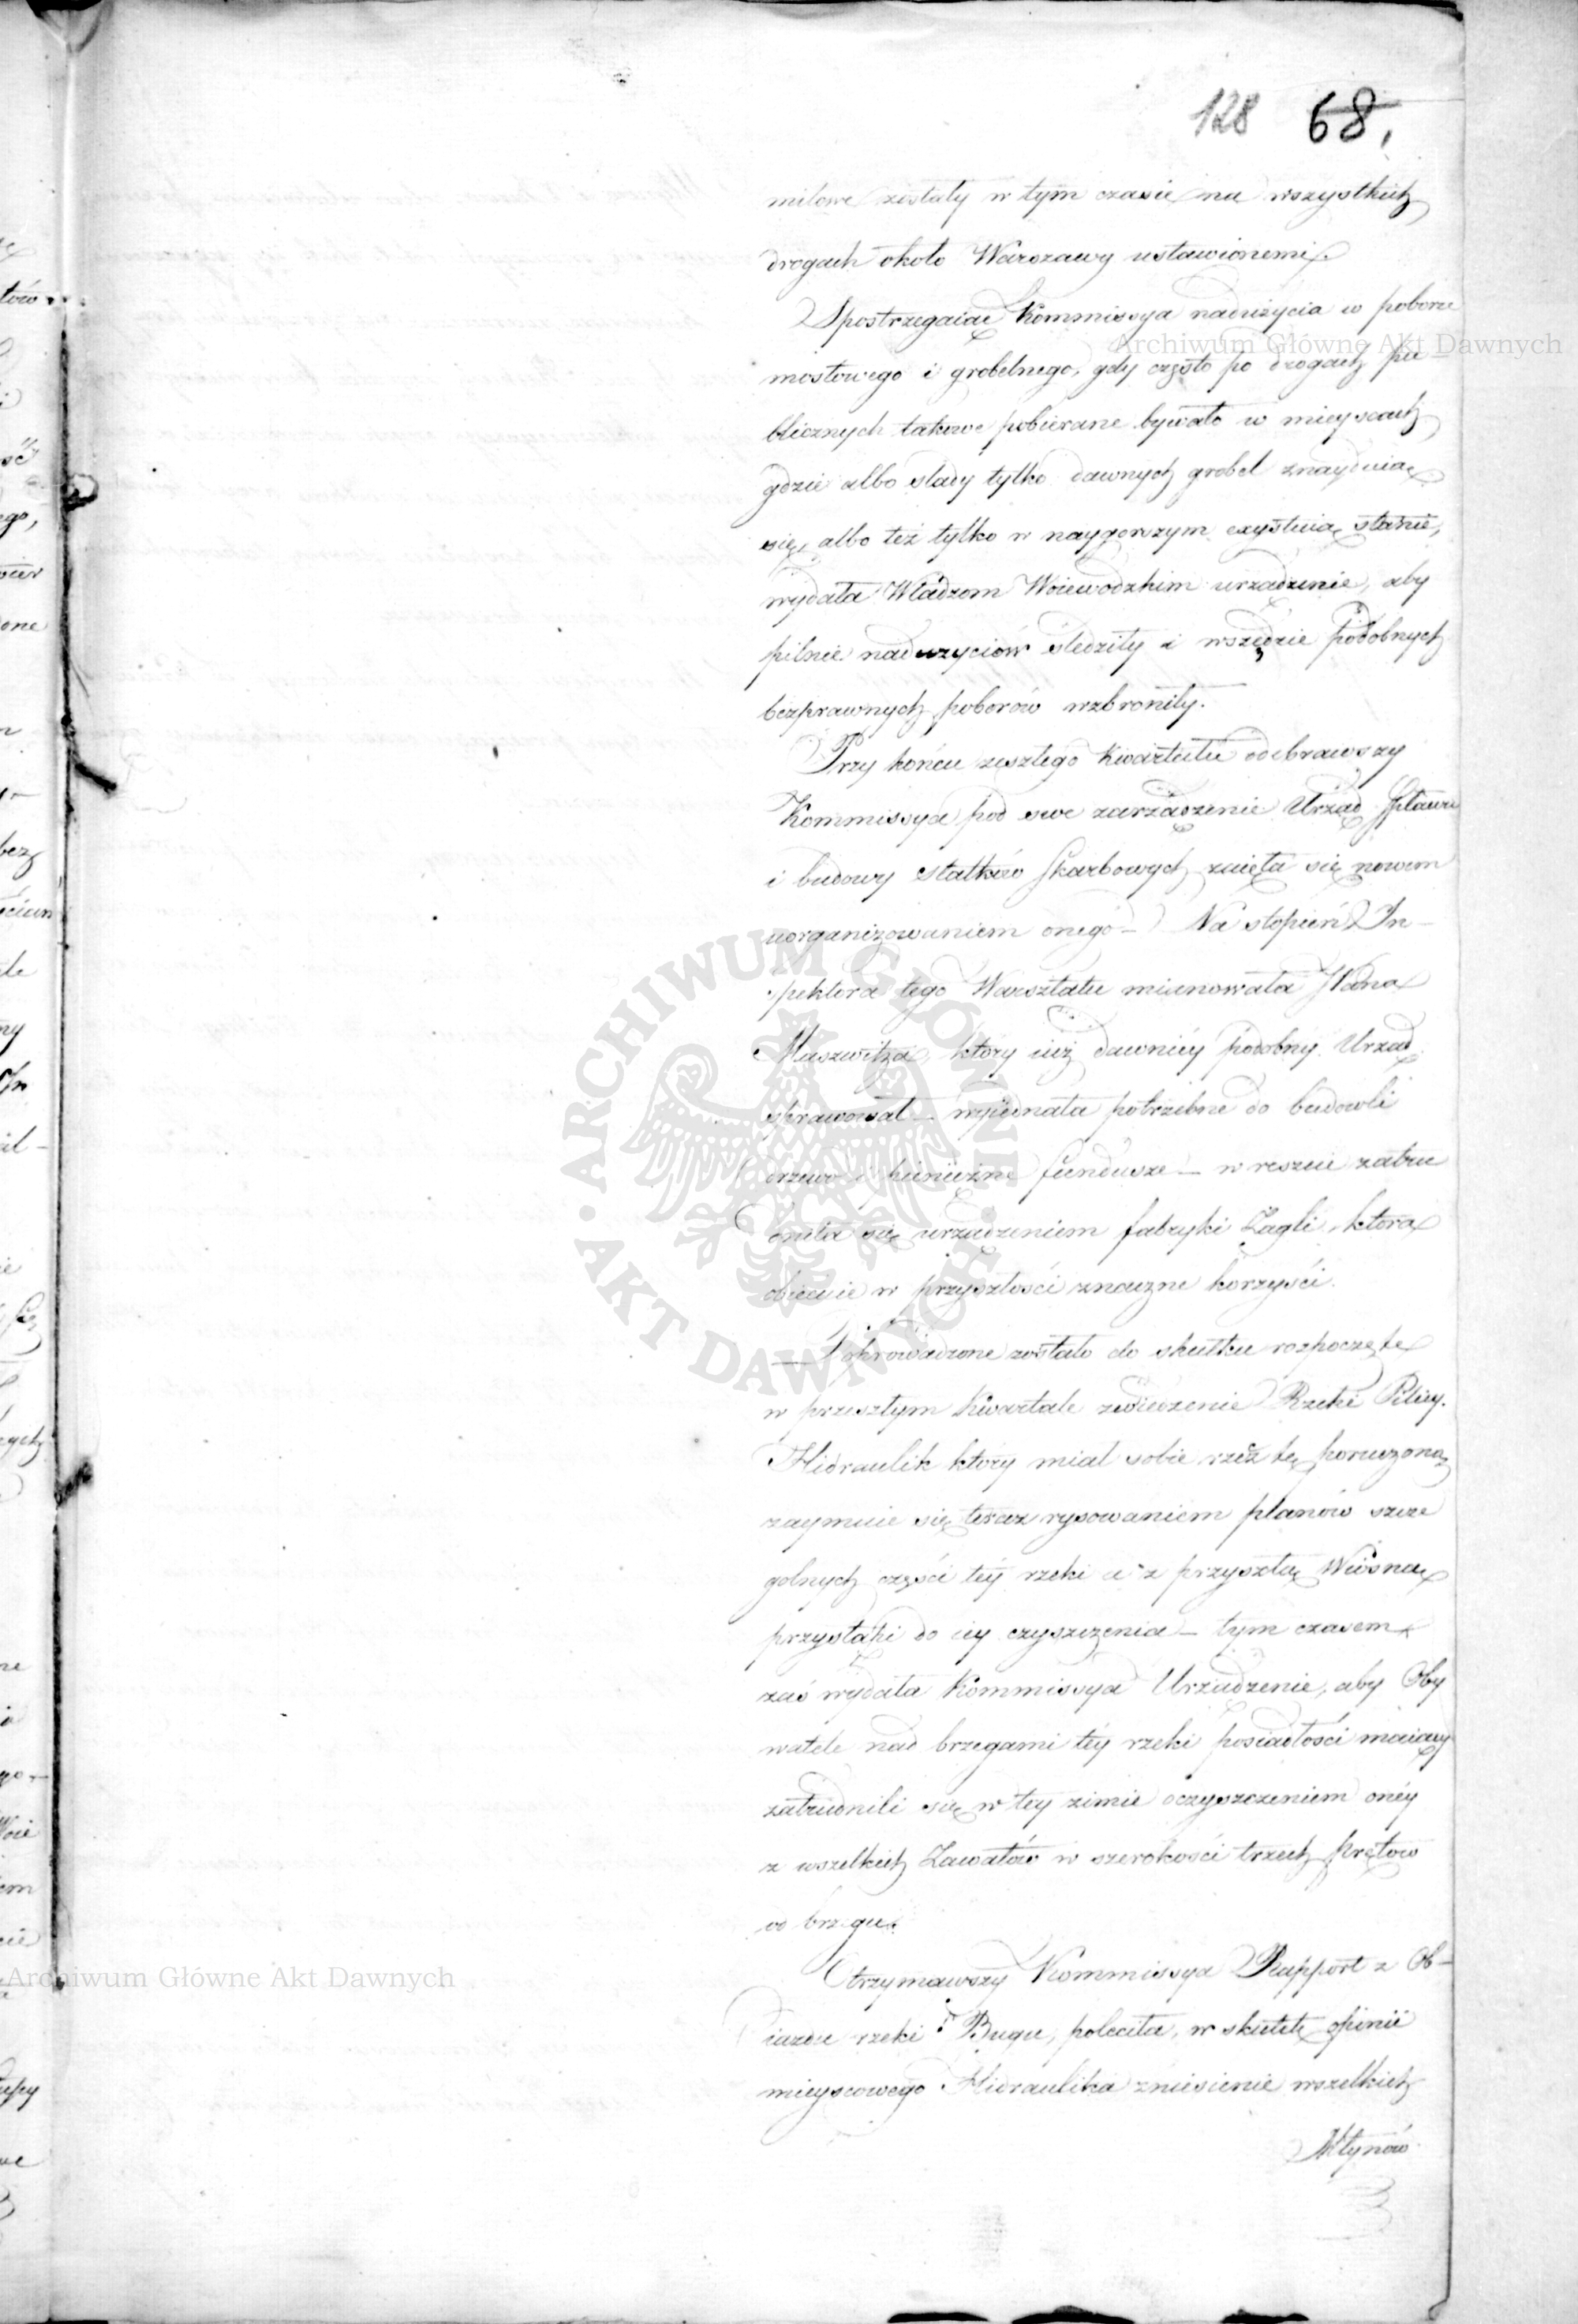 128 68.
milowe zostały w tym czasie na wszystkich
drogach około Warszawy ustawionemi.
Spostrzegaiąc Kommissya nadużycia w poborze
Archiwum Główne Akt Dawnych
mostowego i grobelnego, gdy często po drogach pu
blicznych takowe pobierane bywało w mieyscach
gdzie albo slady tylko dawnych grobel znayduią
się, albo też tylko w naygorszym exystuią stanie,
wydała Władzom Woiewodzkim urządzenie, aby
pilnie nadużyciów sledziły i wszędzie podobnych
bezprawnych poborów wzbroniły.
Przy końcu zeszłego Kwartału odebrawszy
Kommissya pod swe zarządzenie Urząd Spławu
i budowy Statków Skarbowych zaięła się nowem
uorganizowaniem onego – Na stopień In–
spektora tego Warsztatu mianowała JPana
Maszwitza, który iuż dawniéy podobny Urząd
sprawował – wyiednała potrzebne do budowli
drzewo i pieniężne fundusze – w reszcie zatru
dniła się urządzeniem fabryki Żagli, która
obiecuie w przyszłości znaczne korzyści.
– Doprowadzone zostało do skutku rozpoczęte
w przeszłym Kwartale zwiedzenie Rzeki Pilicy.
Hidraulik który miał sobie rzecz tę poruczoną
zaymuie się teraz rysowaniem planów szcze
gólnych części téy rzeki a z przyszłą Wiosną
przystąpi do iéy czyszczenia – tym czasem
zaś wydała Kommissya Urządzenie, aby Oby
watele nad brzegami téy rzeki posiadłości maiący
zatrudnili się w tey zimie oczyszczeniem onéy
z wszelkich Zawałów w szerokości trzech prętów
od brzegu.
Archiwum Główne Akt Dawnych
Otrzymawszy Kommissya Rapport z Ob–
iazdu rzeki Bugu, poleciła, w skutek opinii
mieyscowego Hidraulika zniesienie wszelkich
Młynów
ARCHIWUM GŁÓWNE · AKT DAWNYCH ·